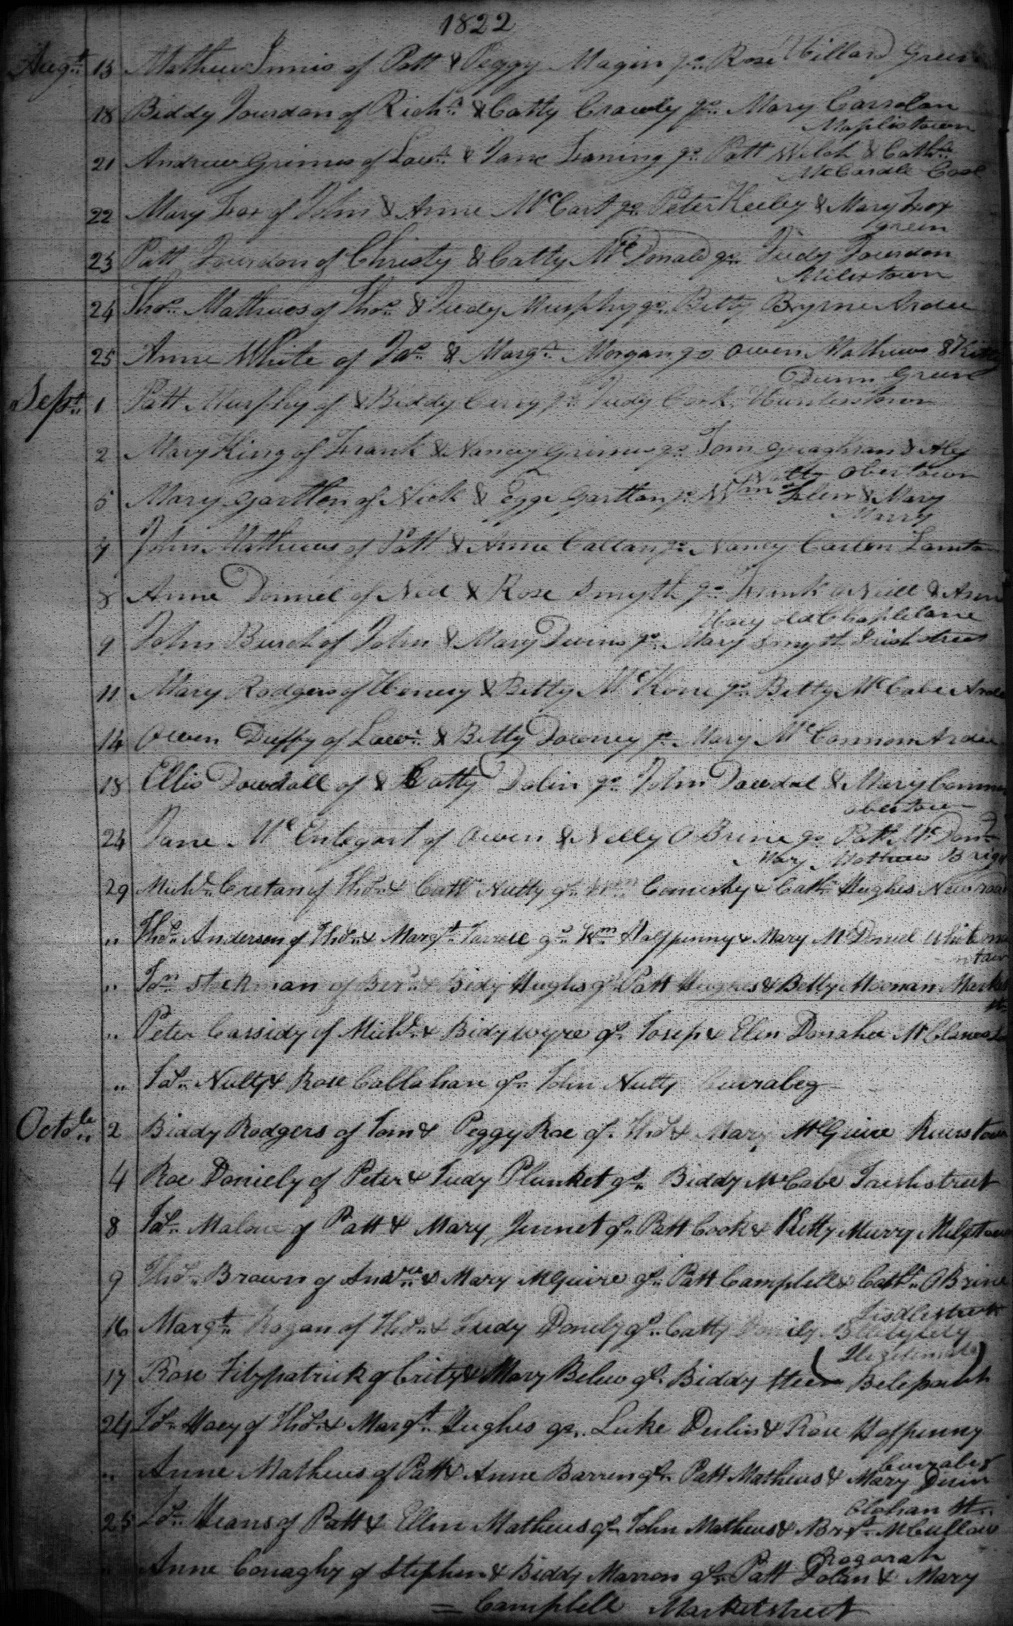 1822
Augt. 13 Mathew Innis of Patt & Peggy Magin gs. Rose Green
18 Biddy Jourdan of Richd. & Catty Crawly gs. Mary Carrolan
Maplistown
21 Andrew Grimes of Lawr. & Jane Laning gs. Patt Welch & Cathn.
McCardle Cool
22 Mary Fox of John & Anne McCart gs. Peter Keeley & Mary Fox
green
23 Patt Jourdan of Christy & Catty McDonald gs. Judy Jourdan
Milestown
24 Thos. Mathews of Thos. & Judy Murphy gs. Betty Byrne Ardee
25 Anne White of Jas. & Margt. Morgan gs Owen Mathews & Kitty
Dunn Green
Sept. 1 Patt Murphy of & Biddy Carry gs. Judy Cook Hunterstown
2 Mary King of Frank & Nancy Grimes gs. Tom &
Obertown
5 Mary Gartlan of Nick & Gartlan gs. Wm & Mary
Marry
7 John Mathews of Patt & Anne Callan gs. Nancy Carlon
8 Anne Donnel of Ned & Rose Smyth gs. Frank ONeill & Ann
Hoey old Chaplelane
9 John Burch of John & Mary Divine gs. Mary Smyth Irish street
11 Mary Rodgers of Henery & Betty McKone gs. Betty McCabe Ardee
14 Owen Duffy of Lawr. & Betty Downey gs. Mary McConnon Ardee
18 Ellis Dowdall of & Catty Dolin gs. John Dowdal & Mary
Obertown
24 Jane McEntegart of Owen & Nelly OBrine gs. Patt McDond.
Mary Mathews Bridge
29 Michl. Cretan of Thos. & Cathn. Nulty gs. Wm Comesky & Cathn. Hughes New road
" Thos. Anderson of Thos. & Margt. gs. Wm Halfpenny & Mary McDonnel White mo
ntain
" Jon. Stockman of Bernd. & Bidy Hughs gs. Patt Hughes & Betty Moonan Market
st.
" Peter Cassidy of Michl. & Bidy wyre gs. Joseph & Elen Donahoe
" Jas. Nulty & Rose Callahan gs. John Nulty Curabeg
Octobr. 2 Biddy Rodgers of Tom & Peggy Roe gs. Thos. & Mary McGuire Riverstown
4 Roe Doniely of Peter & Judy Plunket gs. Biddy McCabe Irishstreet
8 Jas. Malone of Patt & Mary Jennet gs. Patt Cook & Kitty Murry Milestown
9 Thos. Brown of Andrew & Mary McGuire gs. Patt Campbell & Cathn. OBrine
16 Margt. Rogan of Thos. & Judy Donely gs. Catty Donily
17 Rose Fitzpatrick of Crity & Mary Belew gs. Biddy Belipark
24 Jas. Hoey of Thos. & Margt. Hughes gs. Luke Devlin & Rose Hafpenny
Curabeg
" Anne Mathews of Patt & Anne Barren gs. Patt Mathews & Mary Divin
Clohan St.
25 Jas. Means of Patt & Ellen Mathews gs. John Mathews & McCullow
Ragarah
" Anne Conaghy of Stephen & Biddy Marron gs. Patt Dolan & Mary
= Campbell Marketstreet